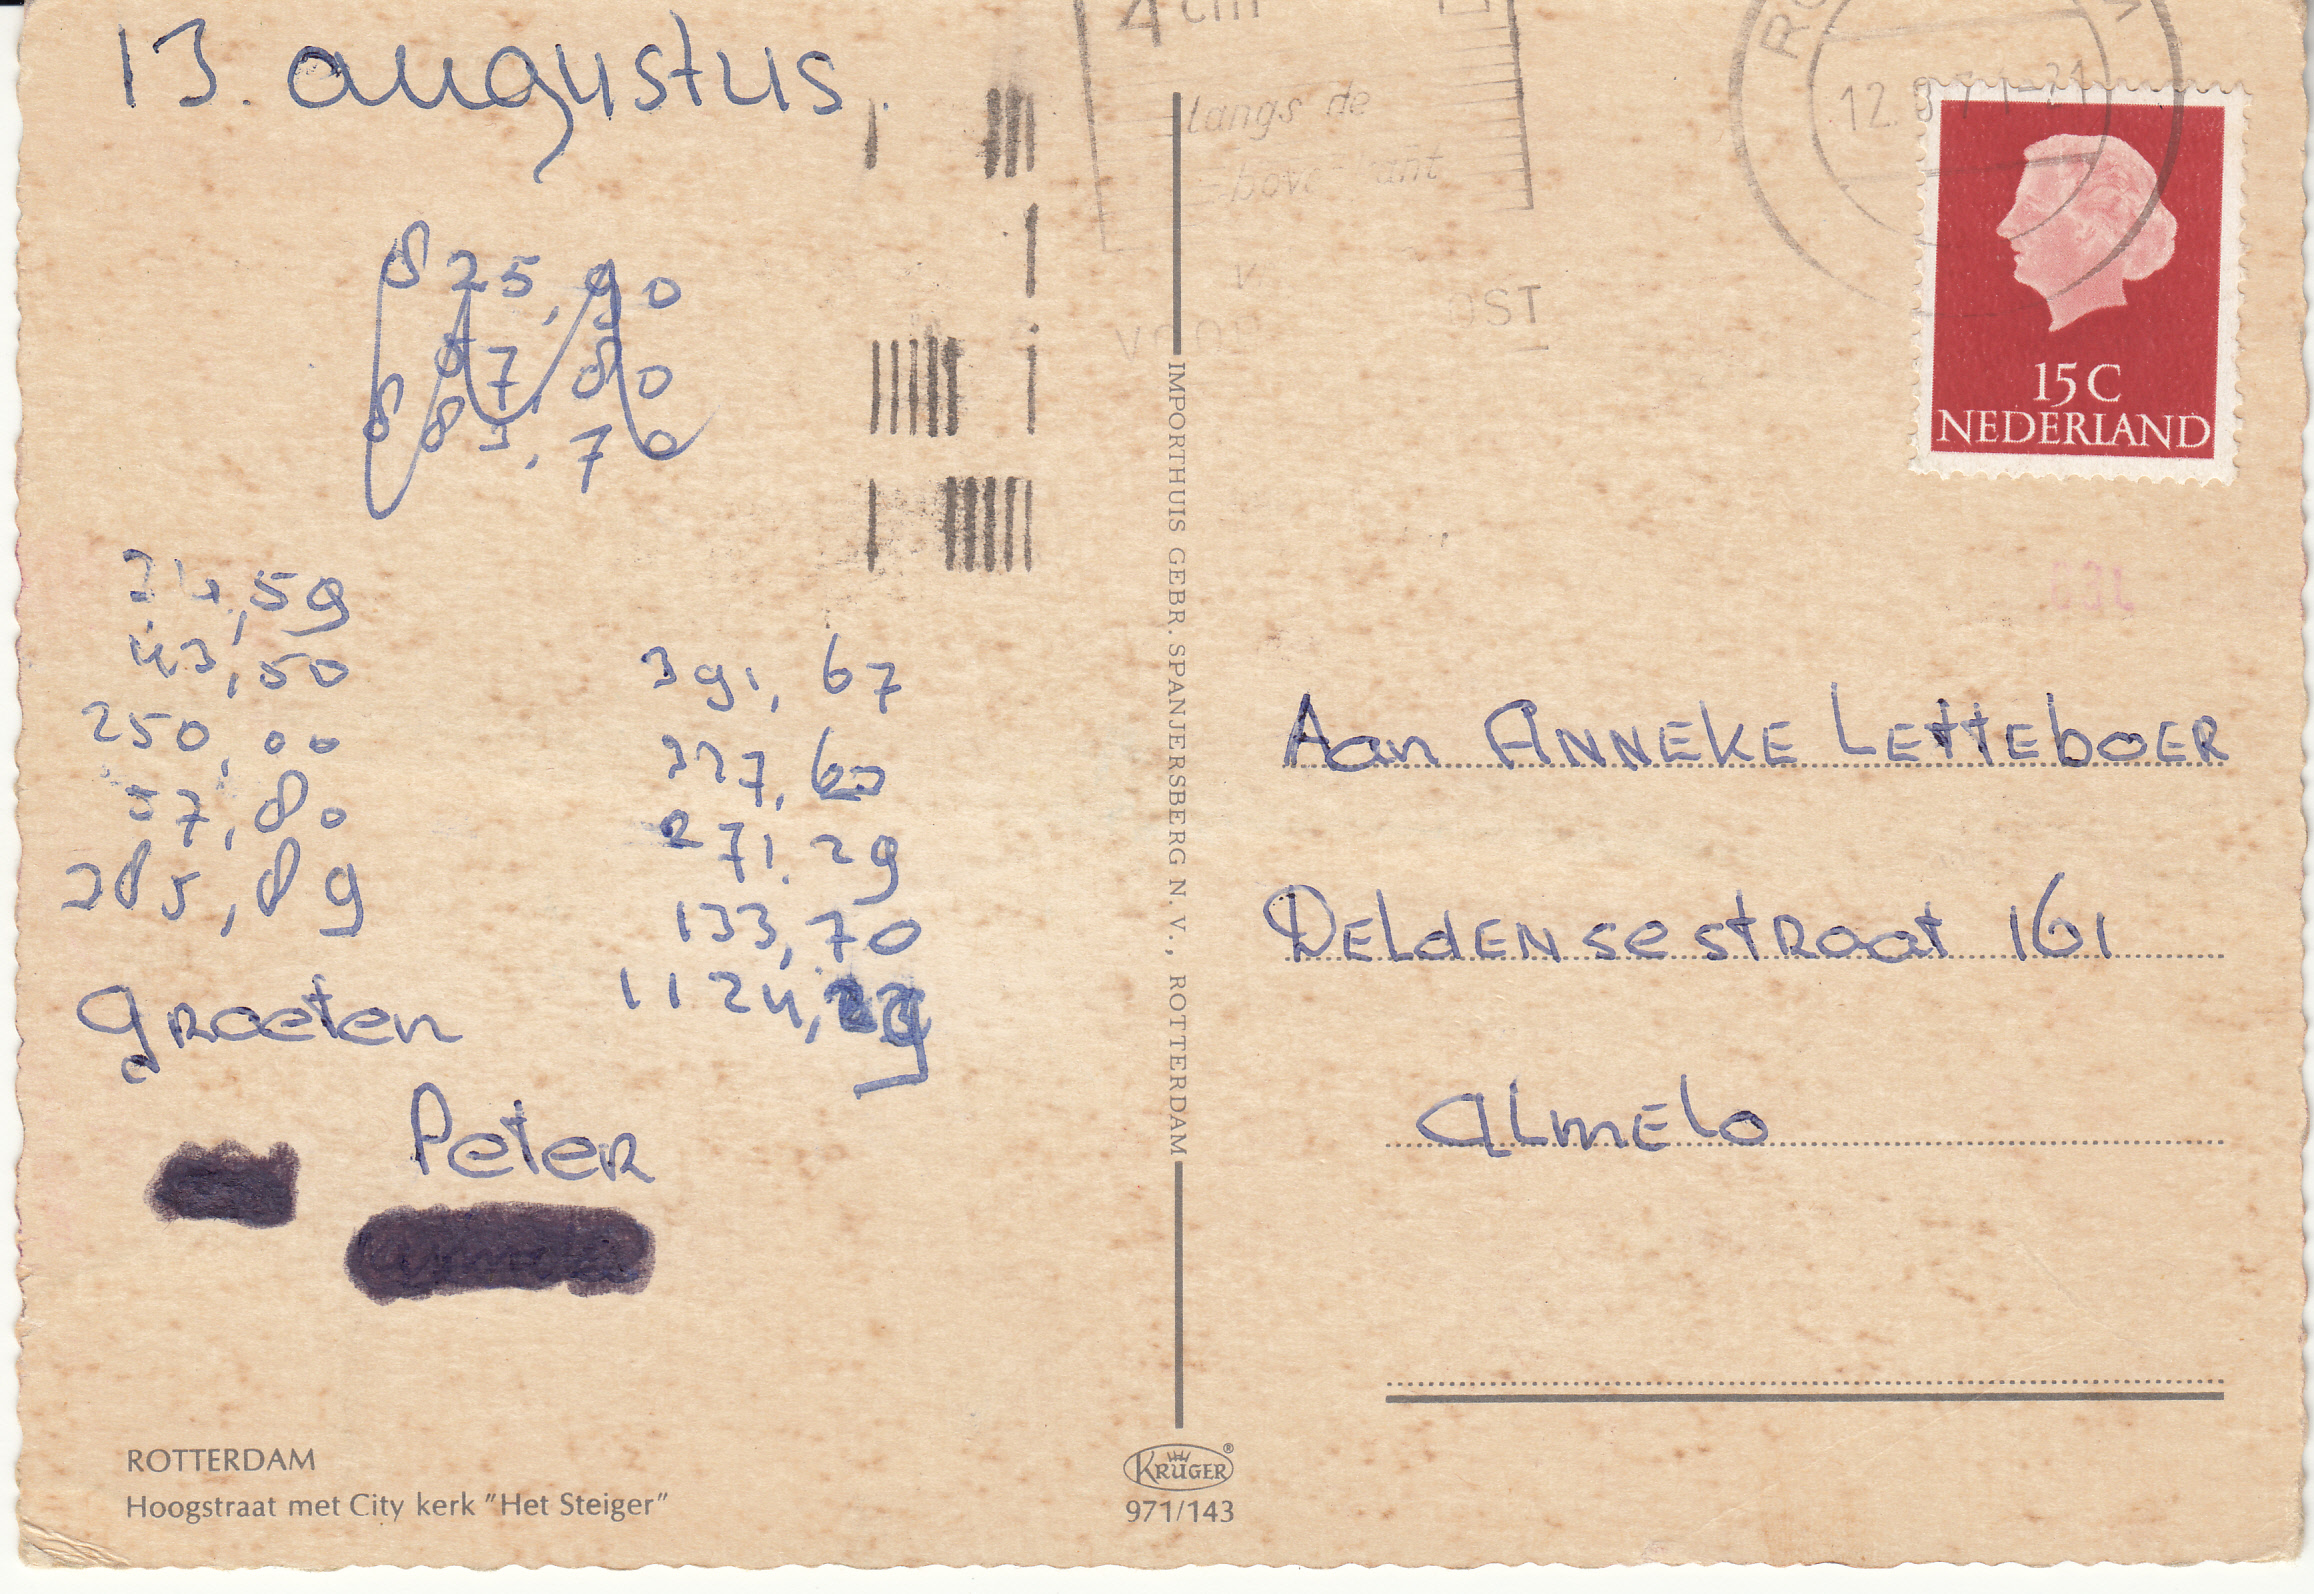 13. augustus.
4 cm
langs de
bovenkant
825,90
7,80
,70
,59
43,50
250,00
57,80
285,89
391,67
327,60
271,29
133,70
1124,
Groeten
Peter
ROTTERDAM
Hoogstraat met City kerk "Het Steiger"
IMPORTHUIS GEBR. SPANJERSBERG N. V., ROTTERDAM
KRÜGER®
971/143
15 C
NEDERLAND
Aan ANNEKE LETTEBOER
DELDENsestraat 161
ALMELO